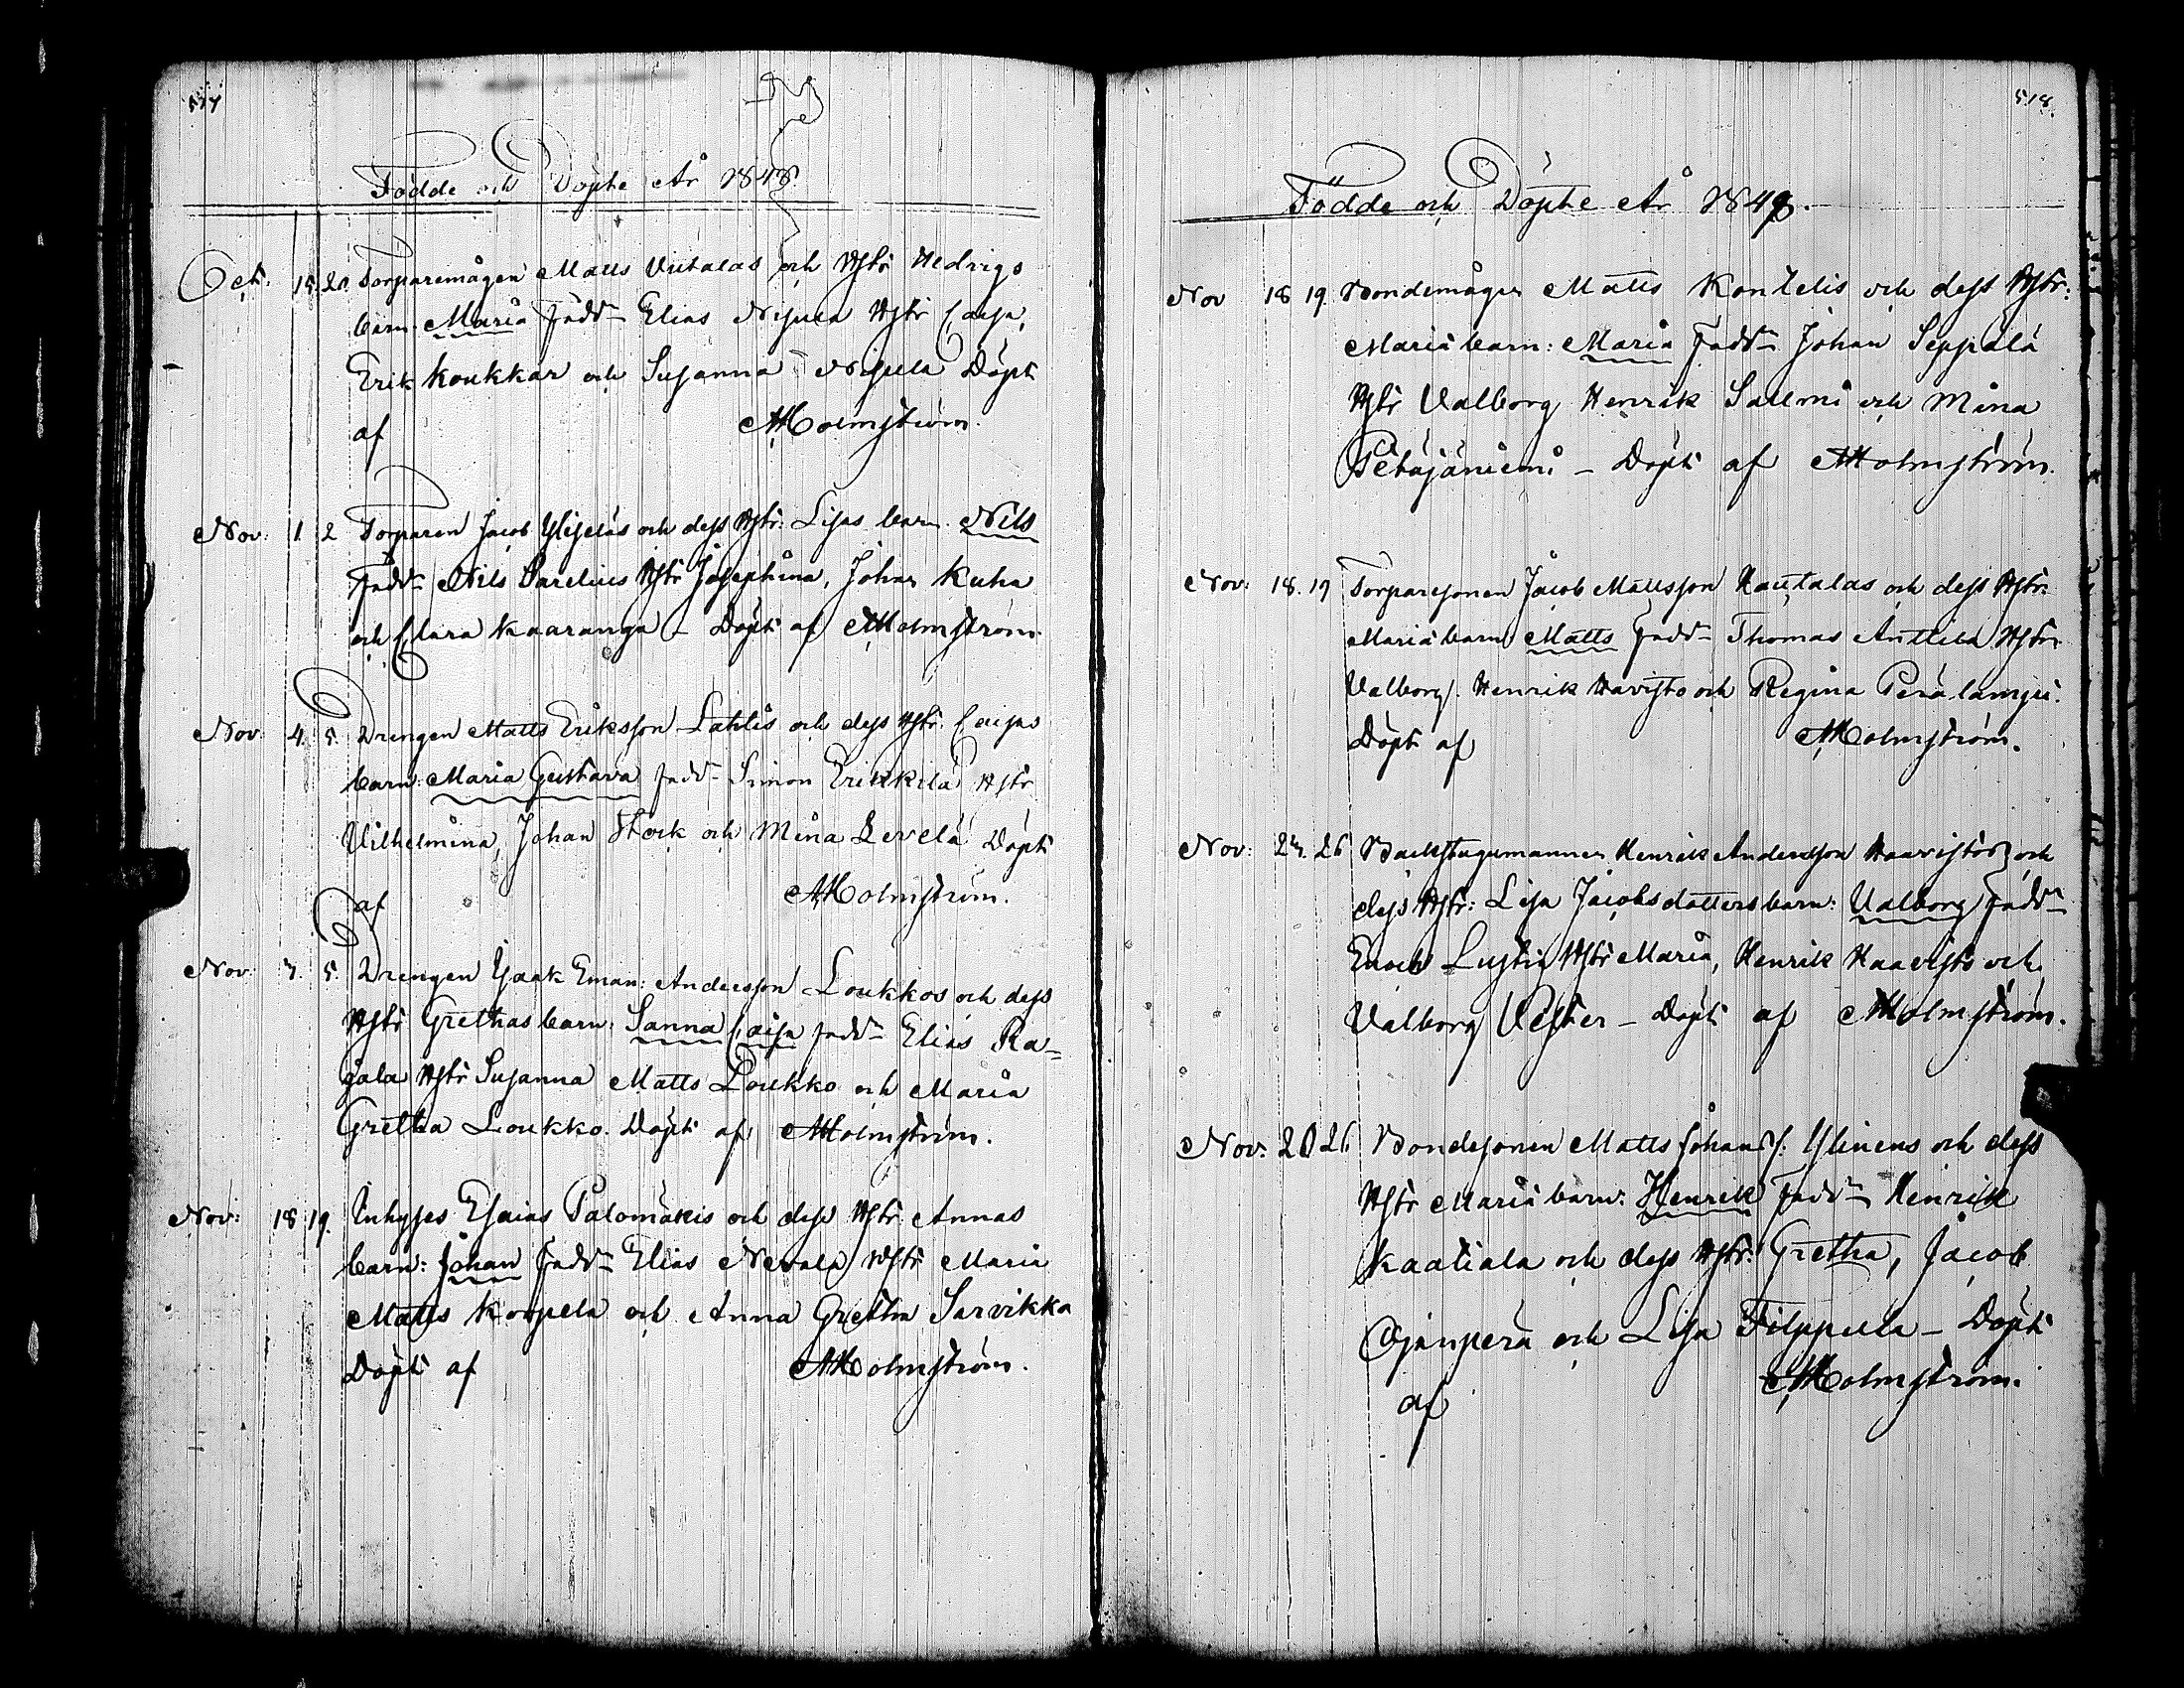 517
Födde och Döpte År 1848.
Oct. 15. 20. Torparemågen Matts Viitalas och Hstr Hedvigs
barn: Maria Fadd. Elias Nisula Hstr Caisa,
Erik Koukkar och Susanna Nisula Döpt
af AHolmström.
Nov: 1. 2 Torparen Jacob Yliseläs och dess Hstr: Lisas barn Nils
Fadd. Nils Sarelius Hstr Josephina, Johan Kuha
och Clara Kaaranga – Döpt af AHolmström.
Nov 4. 5. Drengen Matts Eriksson Lahtis och dess Hstr. Caisas
barn: Maria Gustava fadd. Simon Erikkilä Hstr
Vilhelmina, Johan Stock och Mina Levelä Döpt
af AHolmström.
Nov: 3. 5. Drengen Isaak Eman: Andersson Loukkos och dess
Hstr Grethas barn: Sanna Caisa fadd. Elias Ra=
jala Hstr Susanna Matts Loukko och Maria
Gretha Loukko. Döpt af AHolmström.
Nov: 18 19. Inhyses Esaias Palomäkis och dess Hstr. Annas
barn: Johan Fadd. Elias Nevala Hstr Maria
Matts Korpela och Anna Gretha Sarvikka
Döpt af AHolmström.
518.
Födde och Döpte År 1848.
Nov 18 19. Bondemågen Matts Kontelis och dess Hstr:
Mariä barn: Maria Fadd. Johan Seppälä
Hstr Valborg Henrik Salmi och Mina
Petäjäniemi – Döpt af AHolmström.
Nov: 18. 19 Torparesonen Jacob Mattsson Hautalas och dess Hstr:
Mariä barn Matts fadd. Thomas Anttila Hstr
Valborg. Henrik Havisto och Regina Perälampi.
Döpt af AHolmström.
Nov: 23. 26 Backstugumannen Henrik Andersson Haavistos och
dess Hstr: Lisa Jacobsdotters barn: Valborg fadd.
Enoch Lustig Hstr Maria, Henrik Haavisto och
Valborg Vester – Döpt af AHolmström.
Nov: 20 26. Bondesonen Matts Johans S: Ylinens och dess
Hstr Mariä barn: Henrik Fadd. Henrik
Kaatiala och dess Hstr: Gretha, Jacob
Ojanperä och Lisa Filppula – Döpt
af AHolmström.